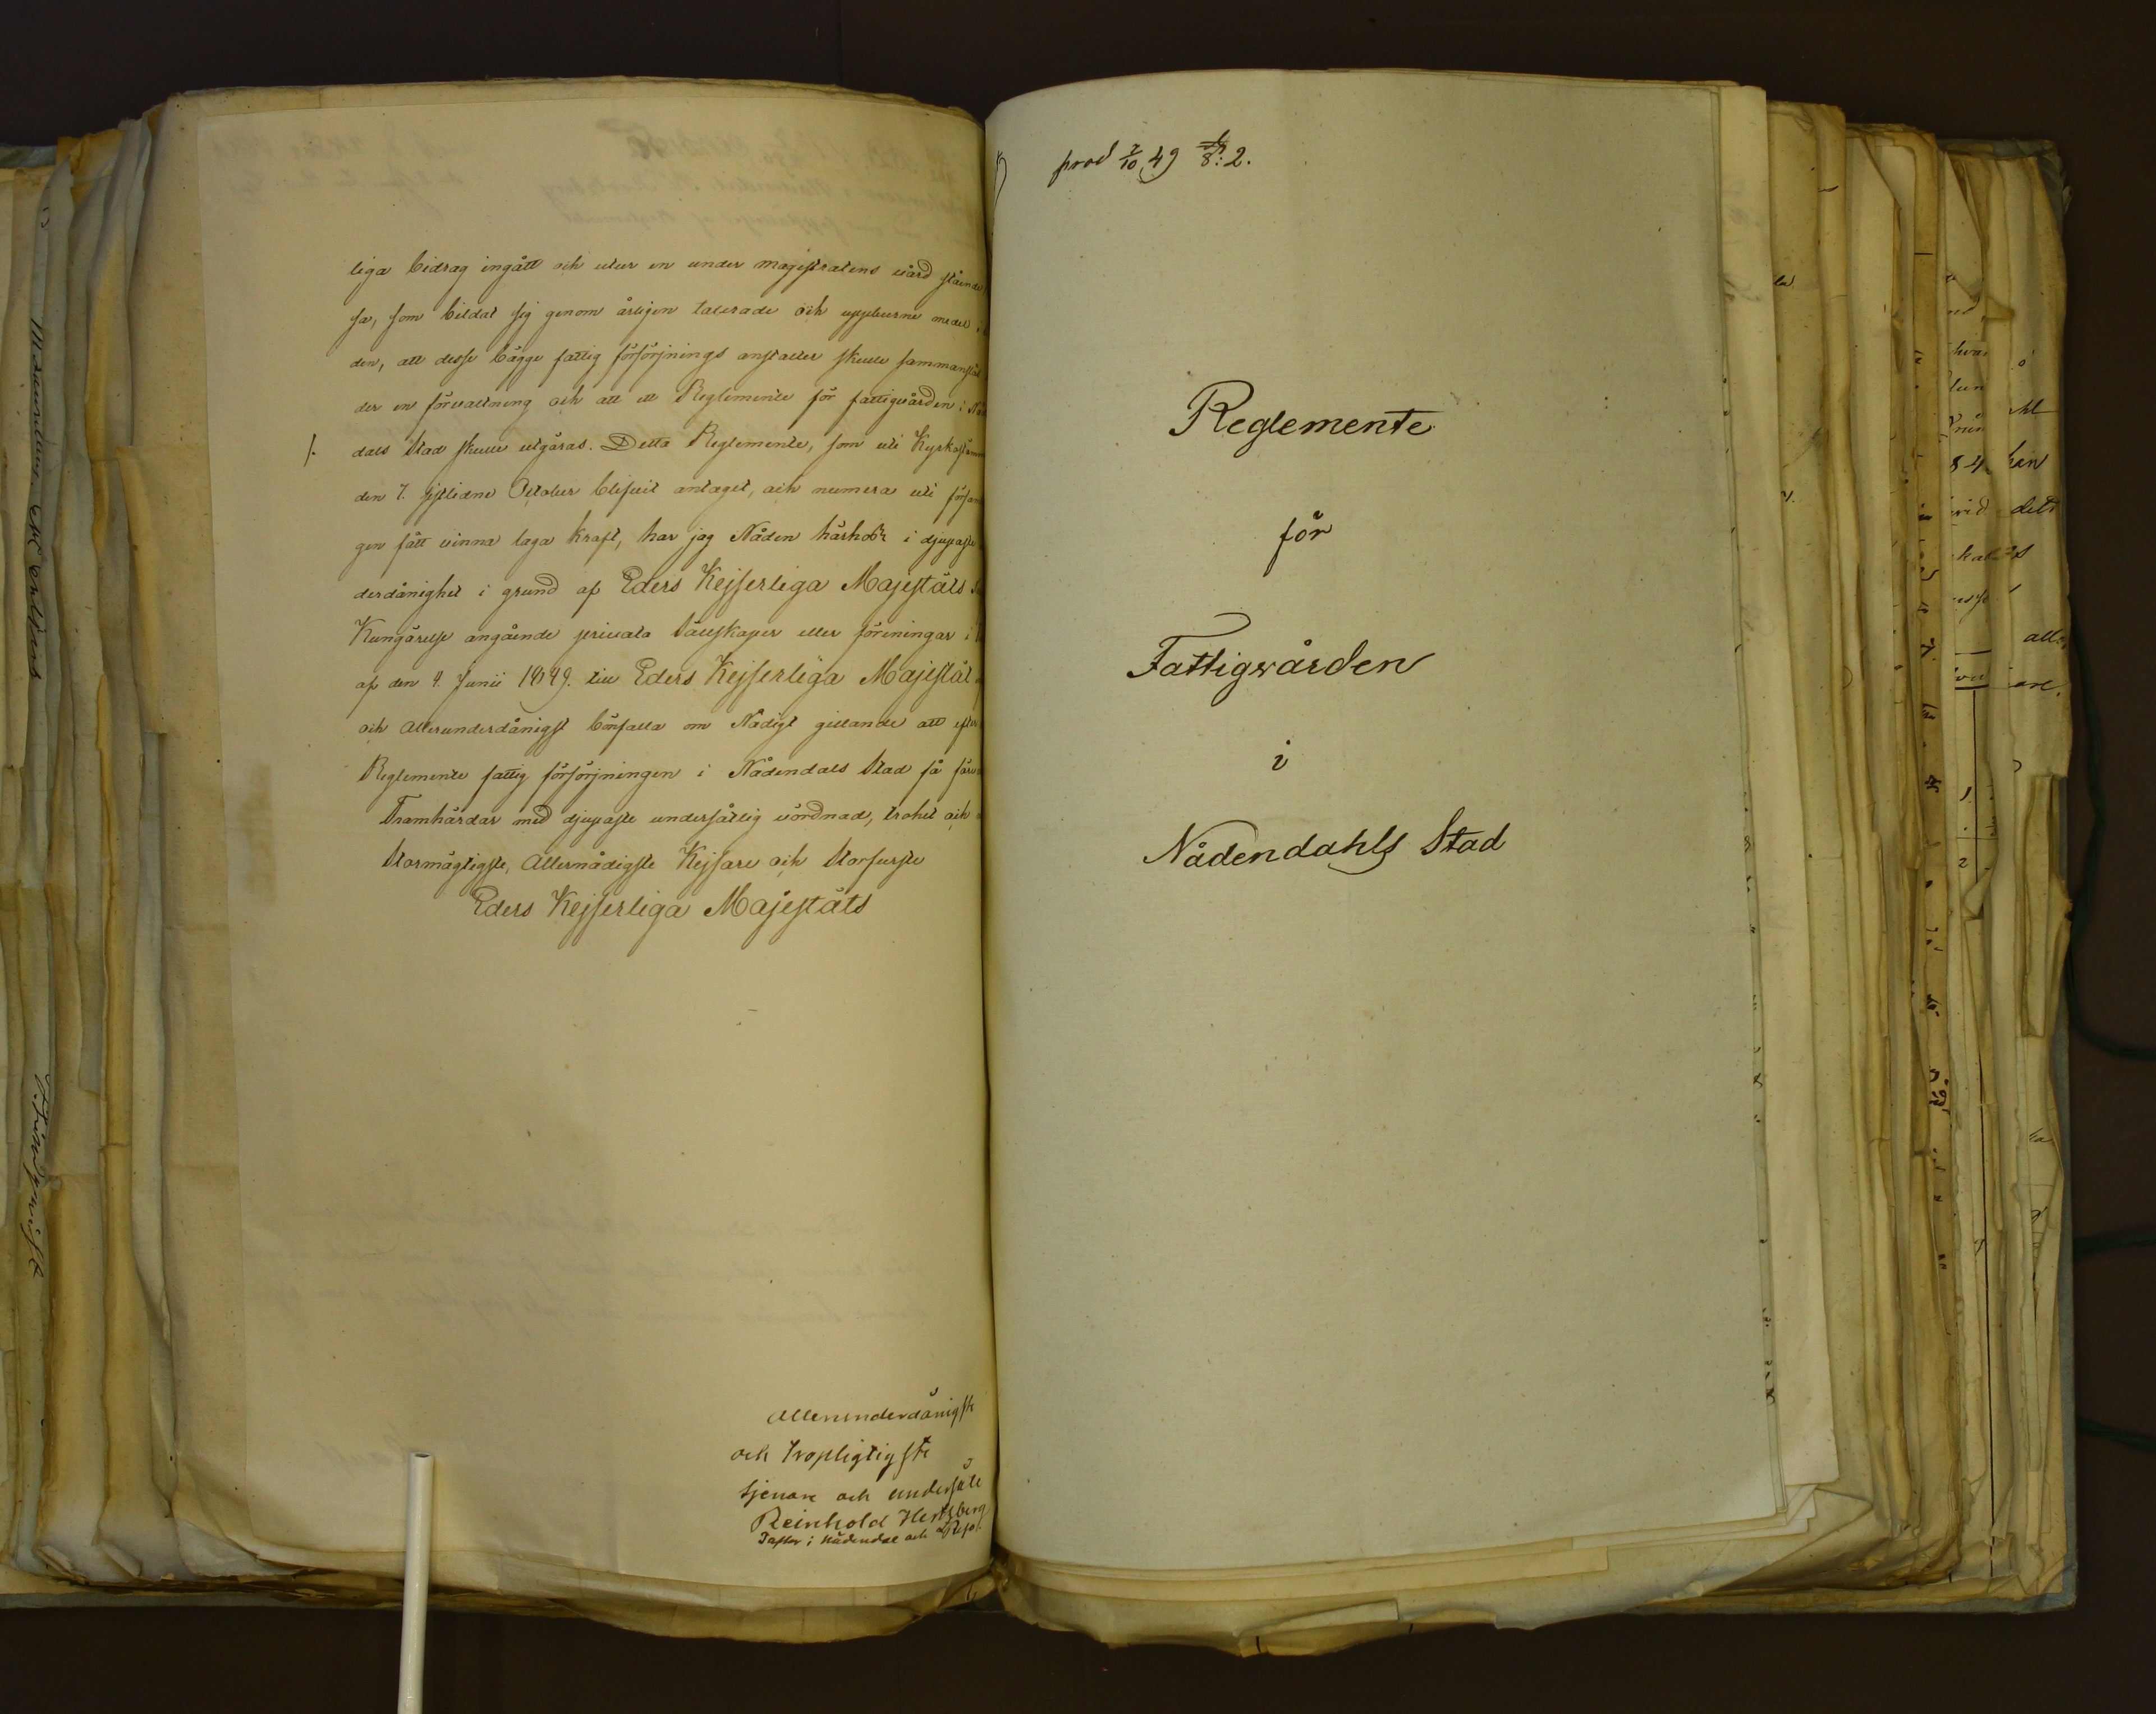 liga bidrag ingått och utur en under magistratens vård stående
sa, som bildat sig genom årligen taxerade och uppburne medel
den, att desse bägge fattig försörjnings anstalter skulle sammanstäl
der en förvaltning och att ett Reglemente för fattigvården i Nåd
dals Stad skulle utgöras. Detta Reglemente, som uti Kyrkostämm
den 7. sistlidne October blifvit antaget, och numera uti försam
gen fått vinna laga kraft, har jag Nåden härhos i djupaste
derdånighet i grund af Eders Kejserliga Majestäts
Kungörelse angående privata Sällskaper eller föreningar i
af den 4 Junii 1849. till Eders Kejserliga Majestät
och Allerunderdånigst bönfalla om Nådigt gillande att efter
Reglemente fattig försörjningen i Nådendals Stad få
Framhärdar med djupaste undersåtlig vördnad, trohet och
Stormägtigste, Allernådigste Kejsare och Storfurste
Eders Kejserliga Majestäts
Allerunderdånigste
och tropligtigste
tjenare och undersåte
Reinhold Hertzberg
Pastor i Nådendal och Reso.
prod 7/10 49 § 8: 2.
Reglemente
för
Fattigwården
i
Nådendahls Stad